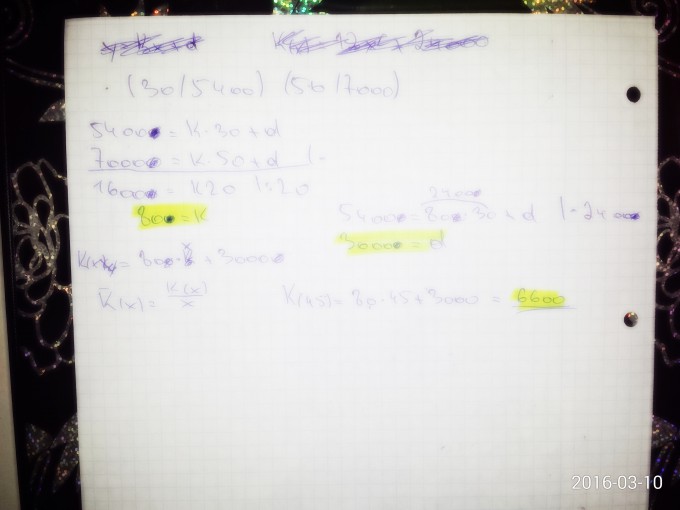 (30/5400) (50/7000)
5400 = K·30+d
7000 = K·50+d |-
1600 = K20 |:20
80 = K
2400
5400 = 80·30+d |-2400
3000 = d
K(x) = 80·x+3000
K̄(x) = K(x)/x
K(45) = 80·45+3000 = 6600
2016-03-10